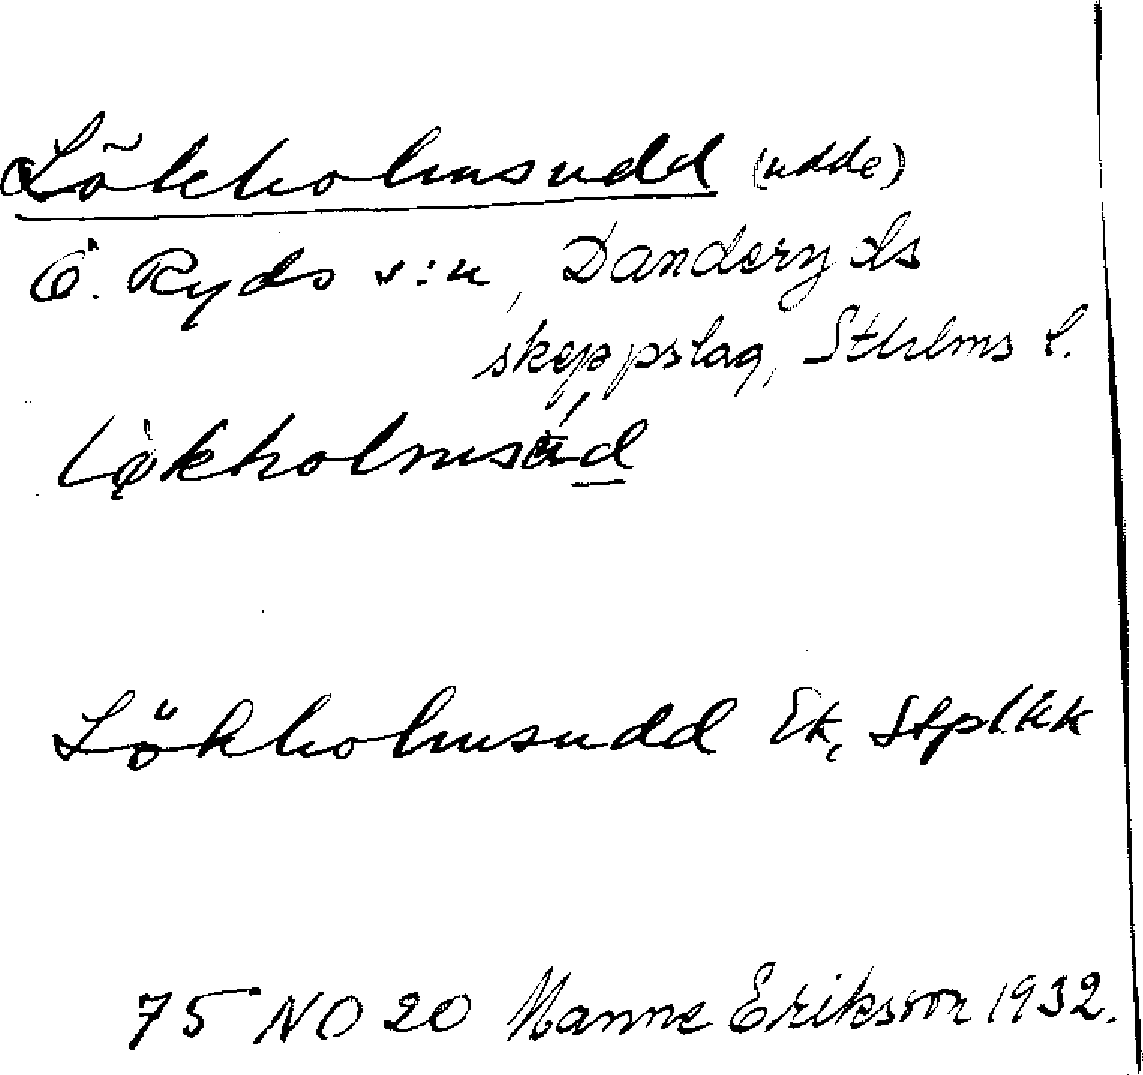 Lökholmsudd (udde)
Ö. Ryds s:n, Danderyds
skeppslag, Sthlms l.
Lökholmsu̇d
Lökholmsudd Ek, Stplkk
75 NO 20 Manne Eriksson 1932.